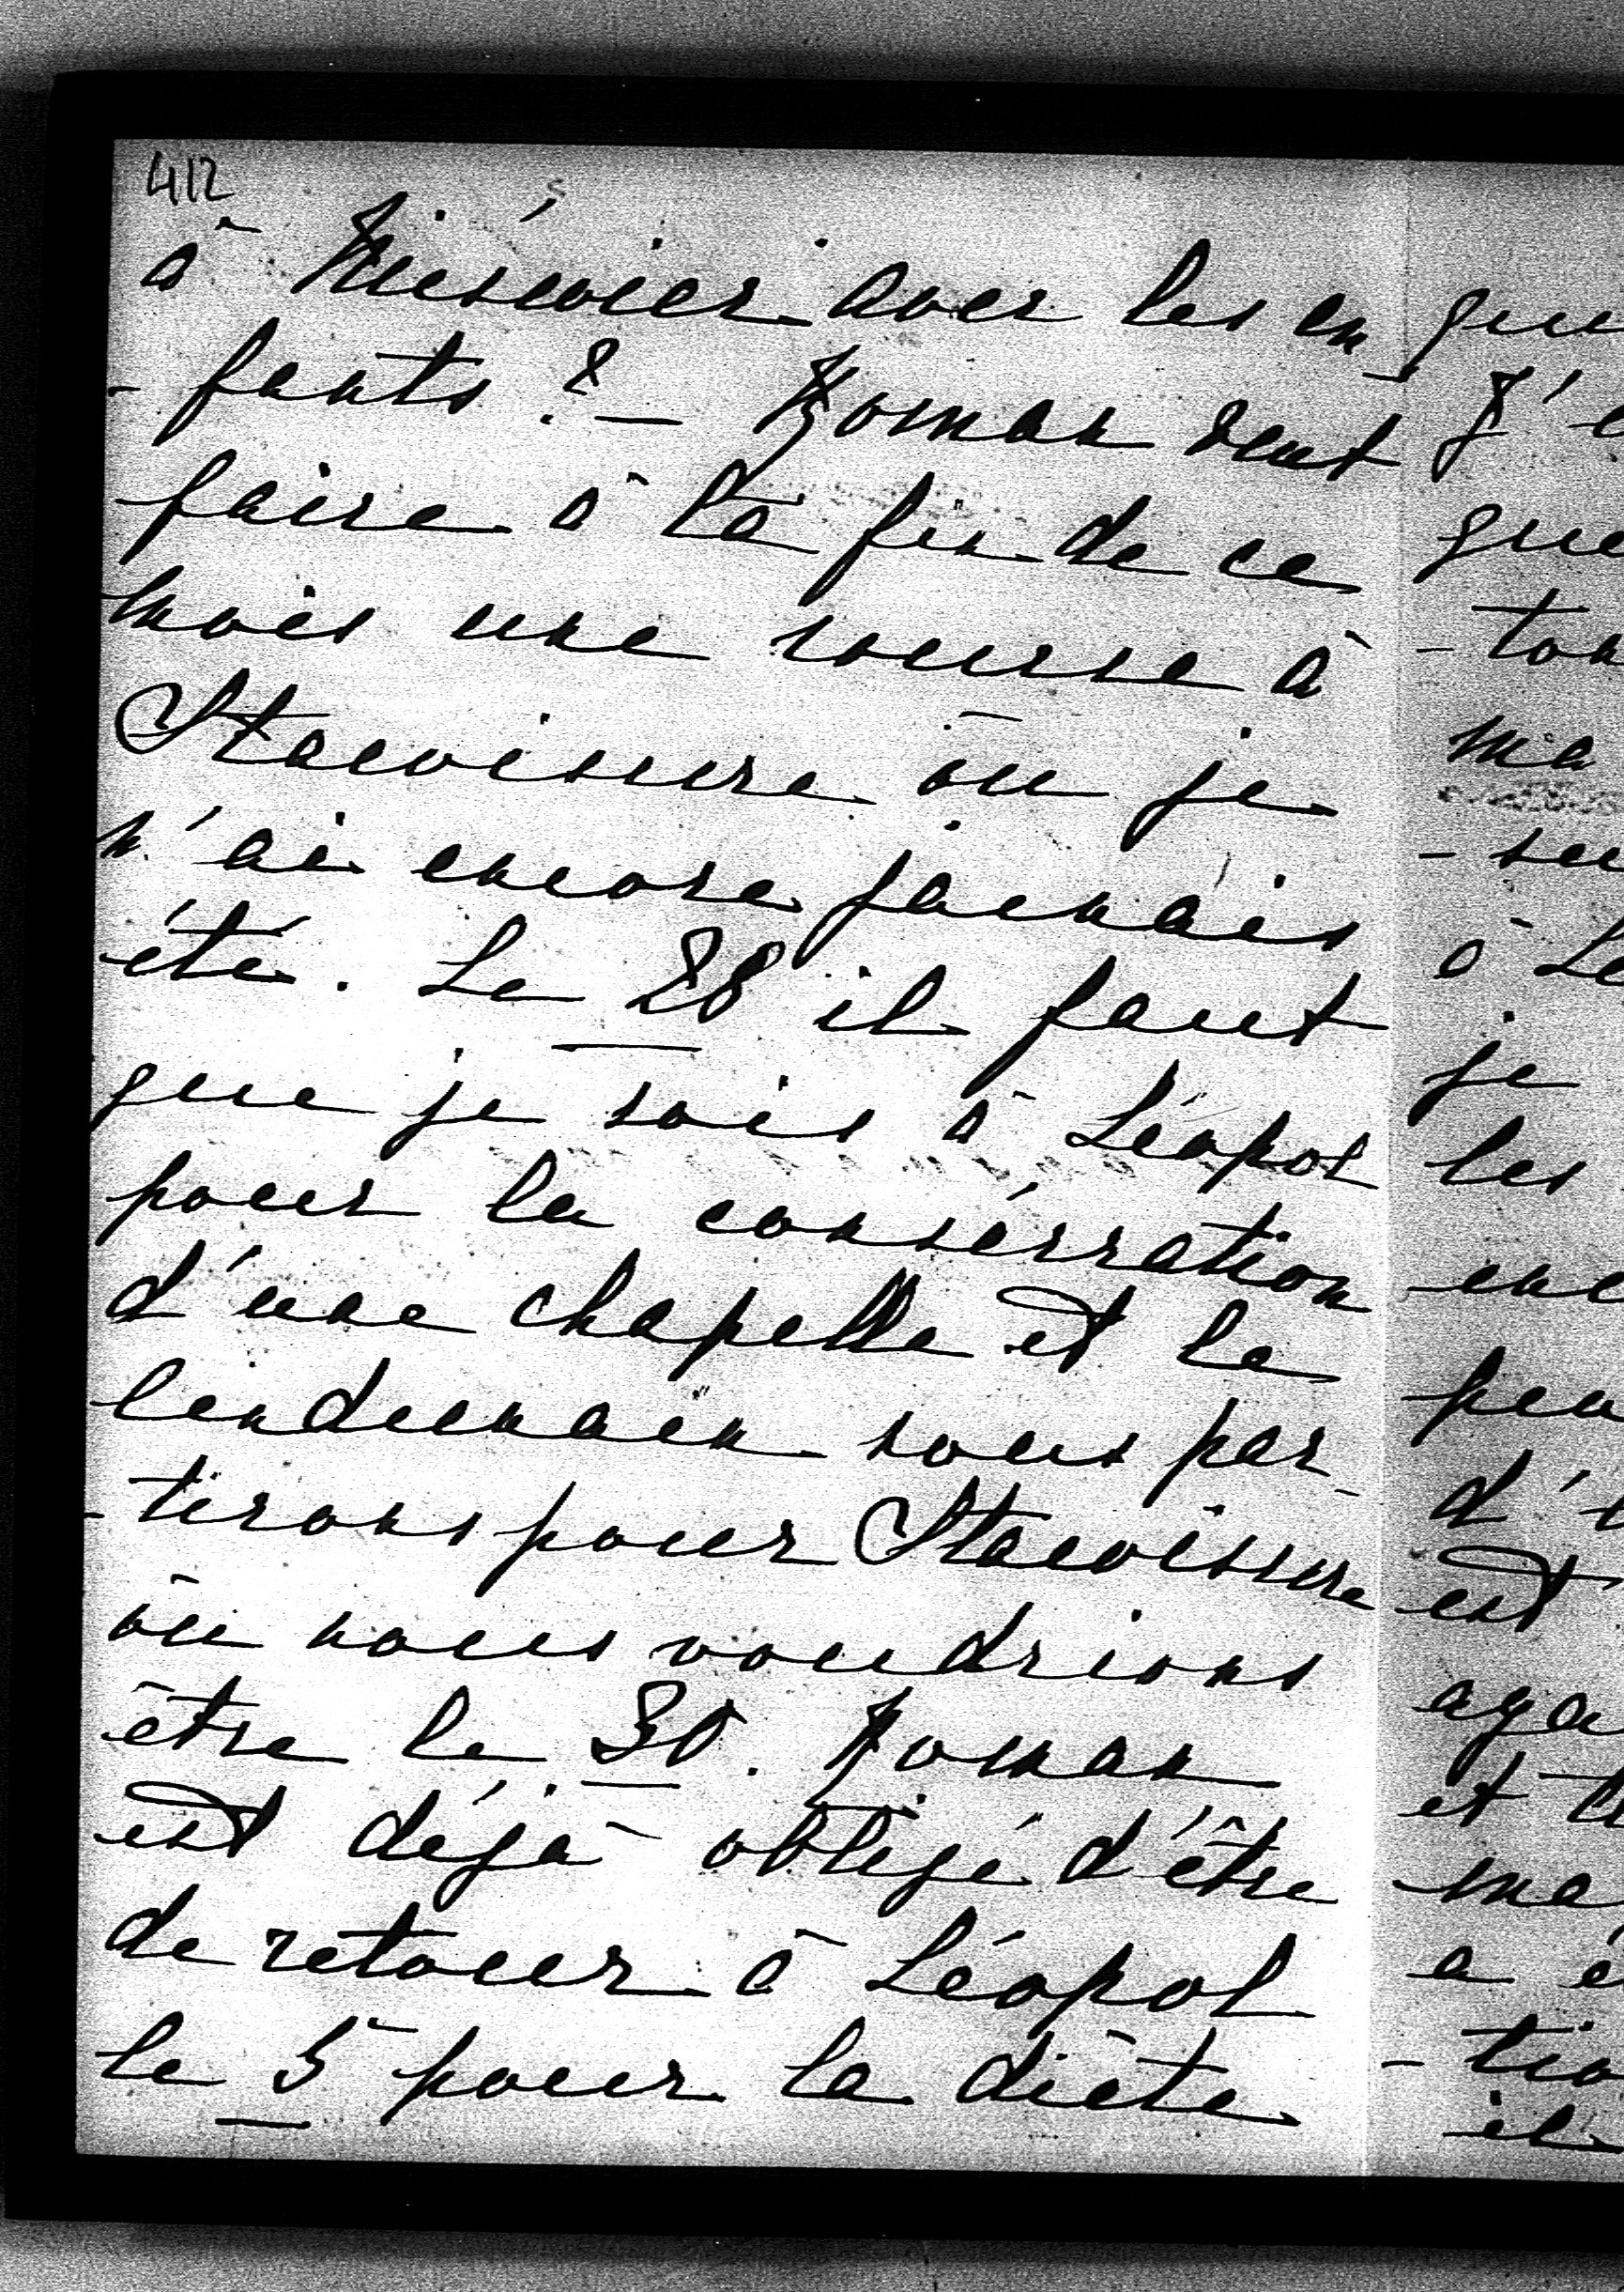 412
à Nieświez avec les en
- fants ? — Roman veut
faire à la fin de ce
mois une course à
Stawiszcze où je
n'ai encore jamais
été. Le 28 il faut
que je sois à Léopol
pour la consécration
d'une chapelle et le
lendemain nous par-
- tirons pour Stawiszcze
où nous voudrions
être le 30. Roman
est déjà obligé d'être
de retour à Léopol
le 5 pour la diète
que
J'
que
- ton
ma
à Lé
je
les
d'
est
et
a
- tio
il